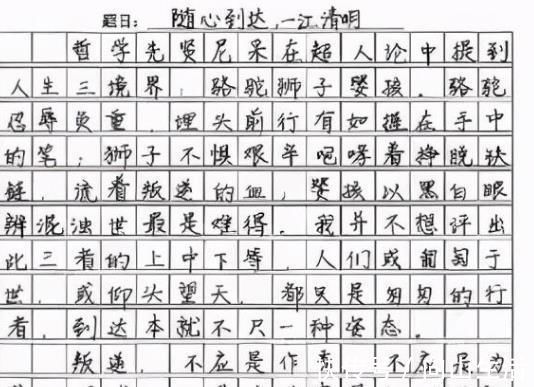 题目：随心到达,一江清明
哲学先贤尼采在超人论中提到
人生三境界，骆驼狮子婴孩。骆驼
忍辱负重，埋头前行有如握在手中
的笔；狮子不惧艰辛咆哮着挣脱铁
链，流着叛逆的血，婴孩以黑白眼
辨混浊世最是难得。我并不想评出
此三者的上中下等，人们或匍匐于
世，或仰头望天，都只是匆匆的行
者，到达本就不只一种姿态。
叛逆，不应是作 不应 为